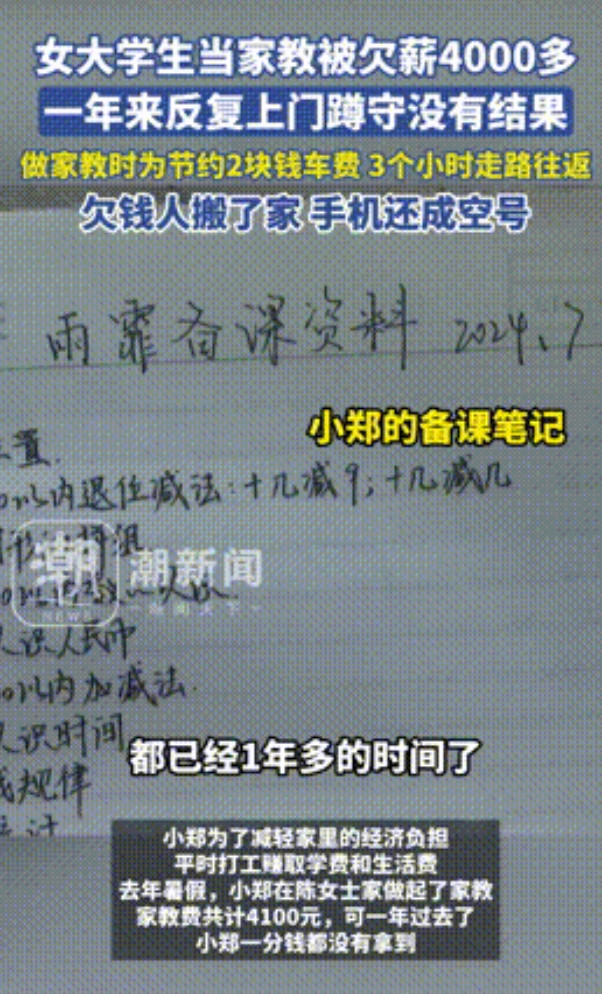 女大学生当家教被欠薪4000多
一年来反复上门蹲守没有结果
做家教时为节约2块钱车费 3个小时走路往返
欠钱人搬了家 手机还成空号
雨霏备课资料 2024.7
小郑的备课笔记
置.
以内退位减法:十几减9;十几减几
潮 潮新闻
NEWS
认识人民币
以内加减法.
认识时间
规律
都已经1年多的时间了
小郑为了减轻家里的经济负担
平时打工赚取学费和生活费
去年暑假，小郑在陈女士家做起了家教
家教费共计4100元，可一年过去了
小郑一分钱都没有拿到